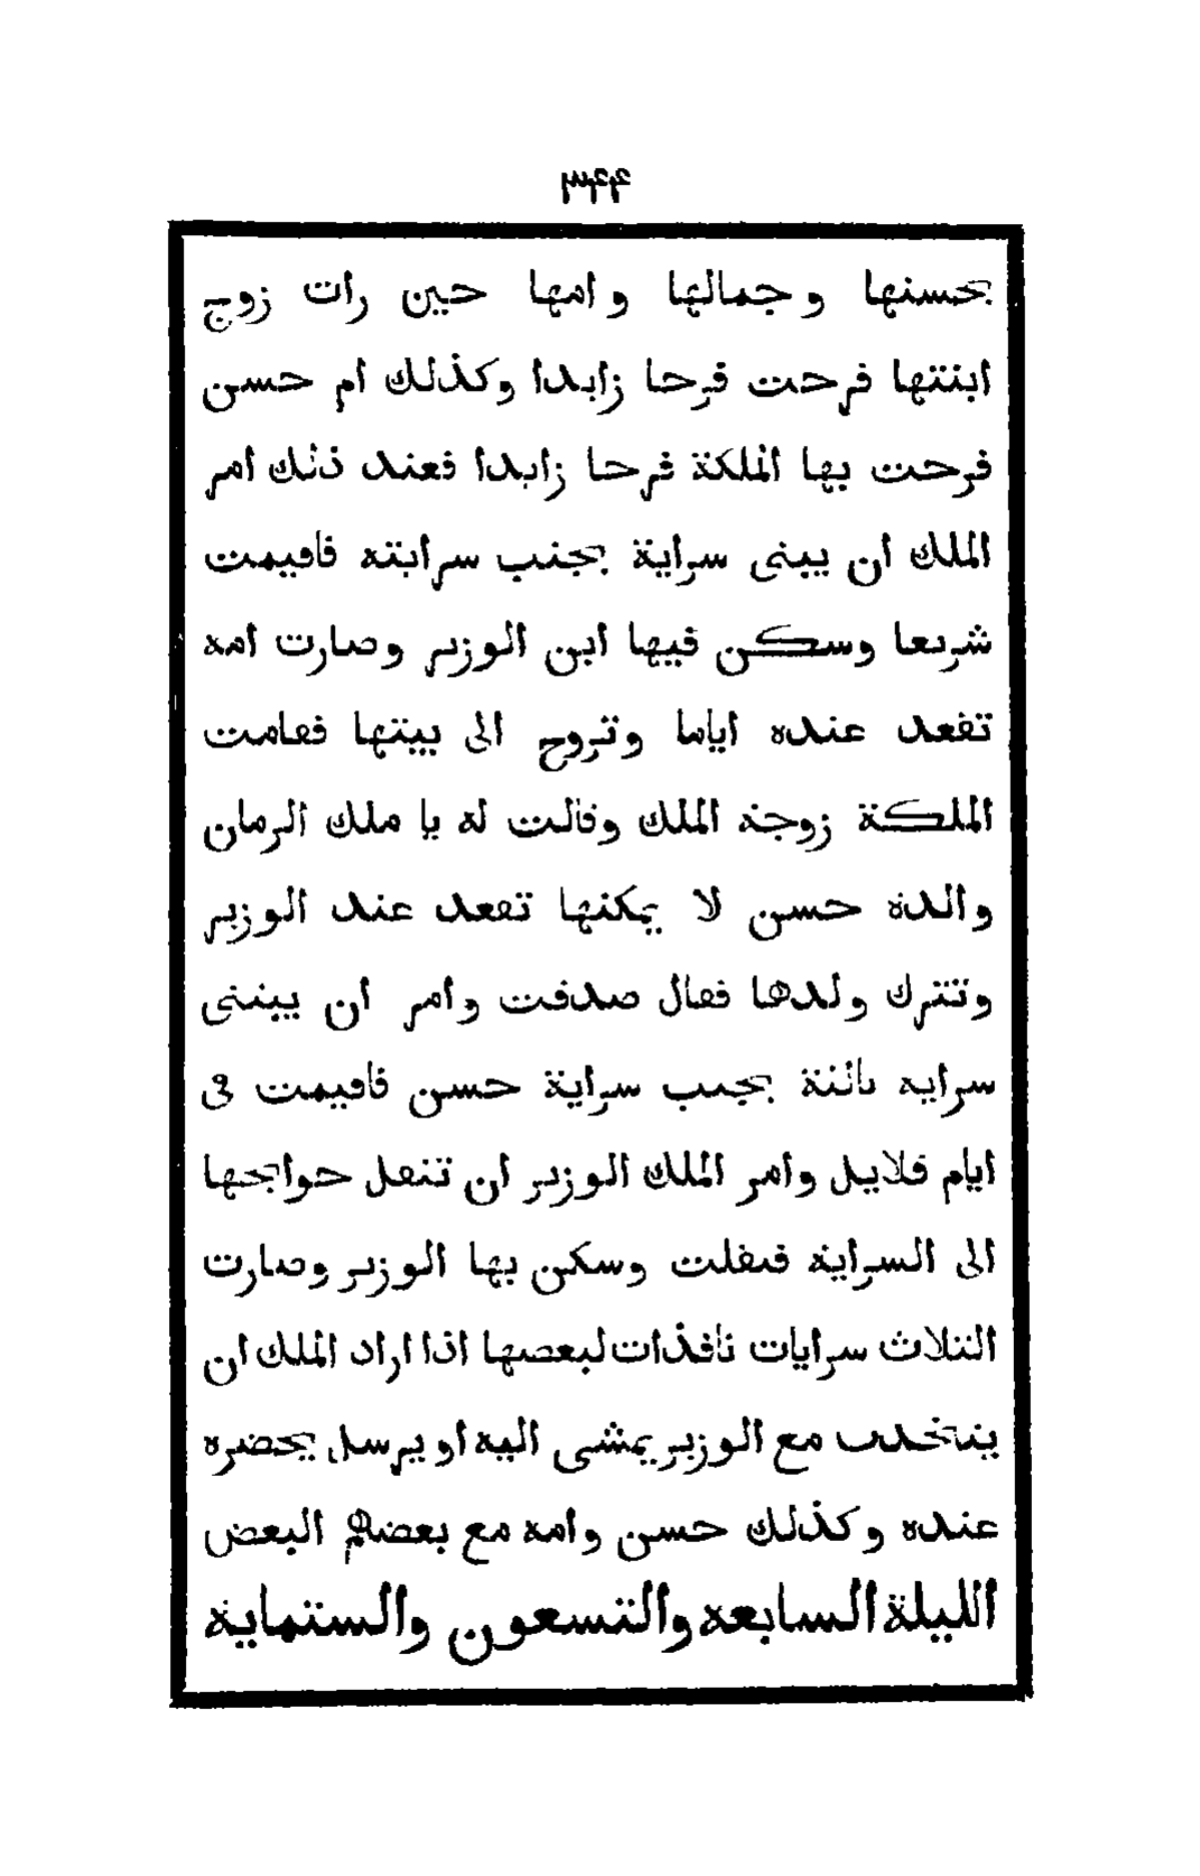 ٣٤٤
بحسنها وجمالها وامها حين رات زوج
ابنتها فرحت فرحا زايدا وكذلك ام حسن
فرحت بها الملكة فرحا زايدا فعند ذلك امر
الملك ان يبنى سراية بجنب سرايته فاقيمت
شريعا وسكن فيها ابن الوزير وصارت امه
تقعد عنده اياما وتروح الى بيتها فقامت
الملكة زوجة الملك وقالت له يا ملك الزمان
والدة حسن لا يمكنها تقعد عند الوزير
وتترك ولدها فقال صدقت وامر ان يبنى
سراية ثالثة بجنب سراية حسن فاقيمت فى
ايام قلايل وامر الملك الوزير ان تنقل حوايجها
الى السراية فنقلت وسكن بها الوزير وصارت
الثلاث سرايات نافذات لبعضها اذا اراد الملك ان
يتحدث مع الوزير يمشى اليه او يرسل يحضره
عنده وكذلك حسن وامه مع بعضهم البعض
الليلة السابعة والتسعون والستماية